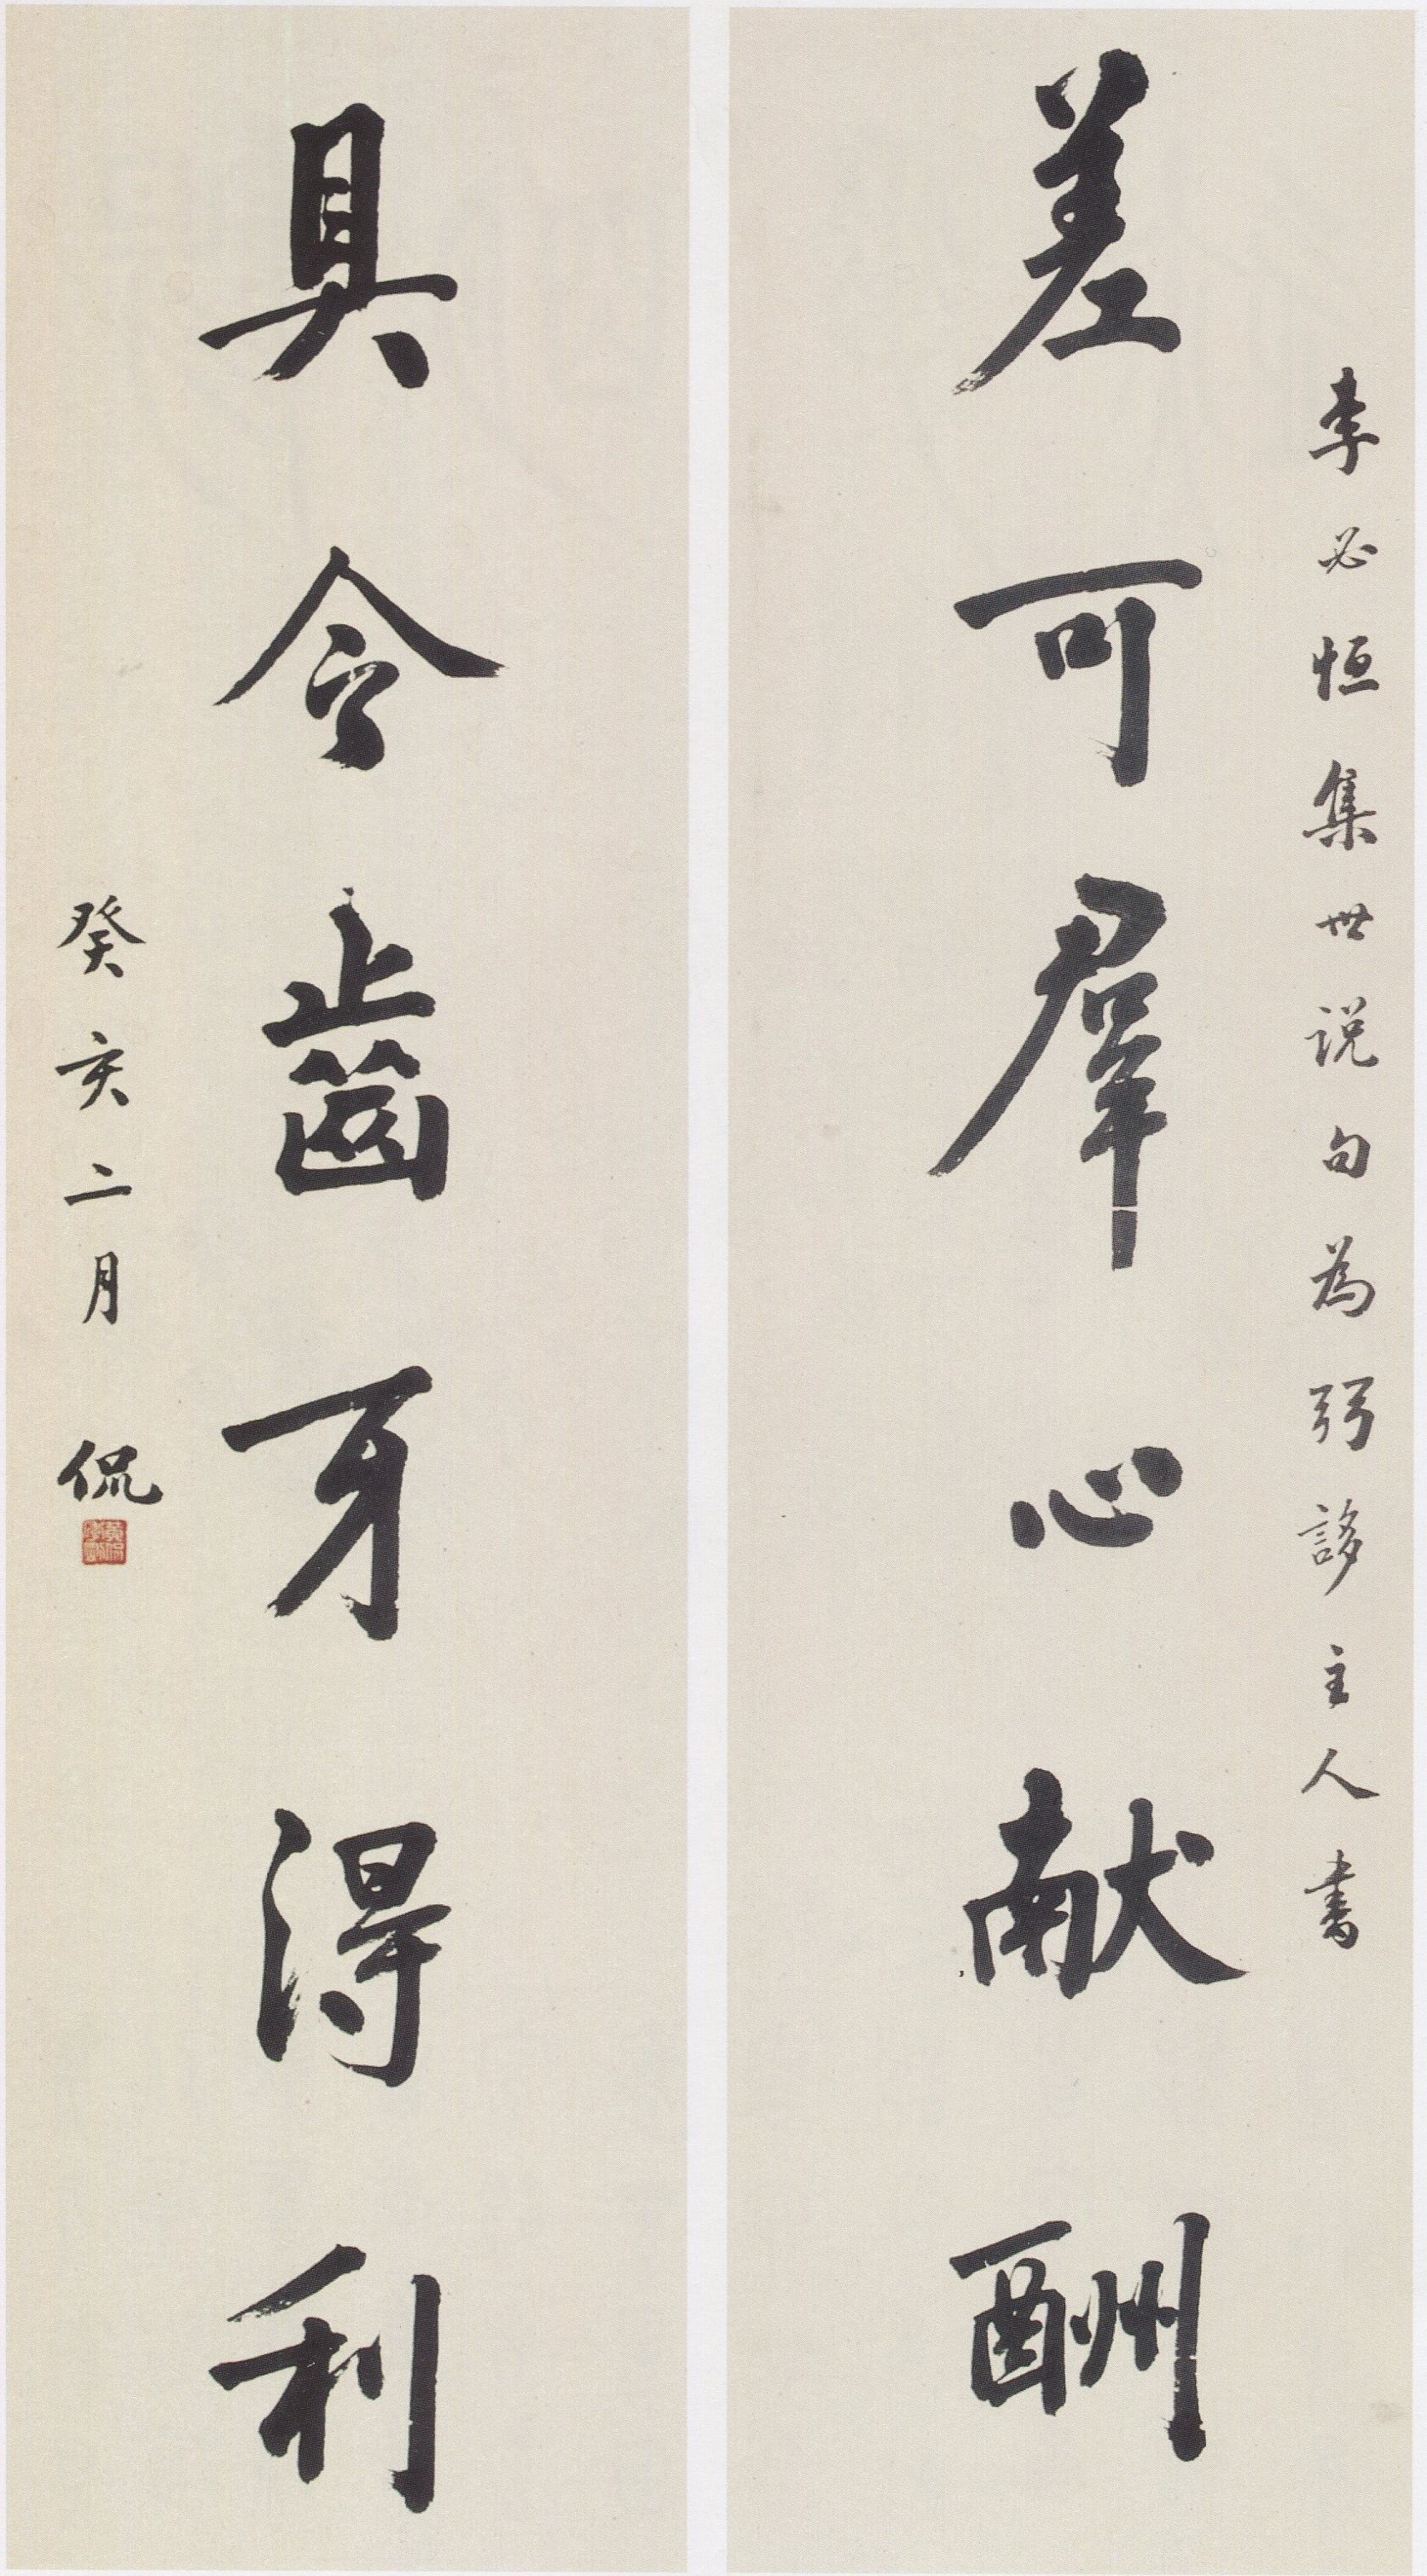 李必恒集世说句為弜謻主人書
差可羣心献酬
具令齒牙得利
癸亥二月 侃